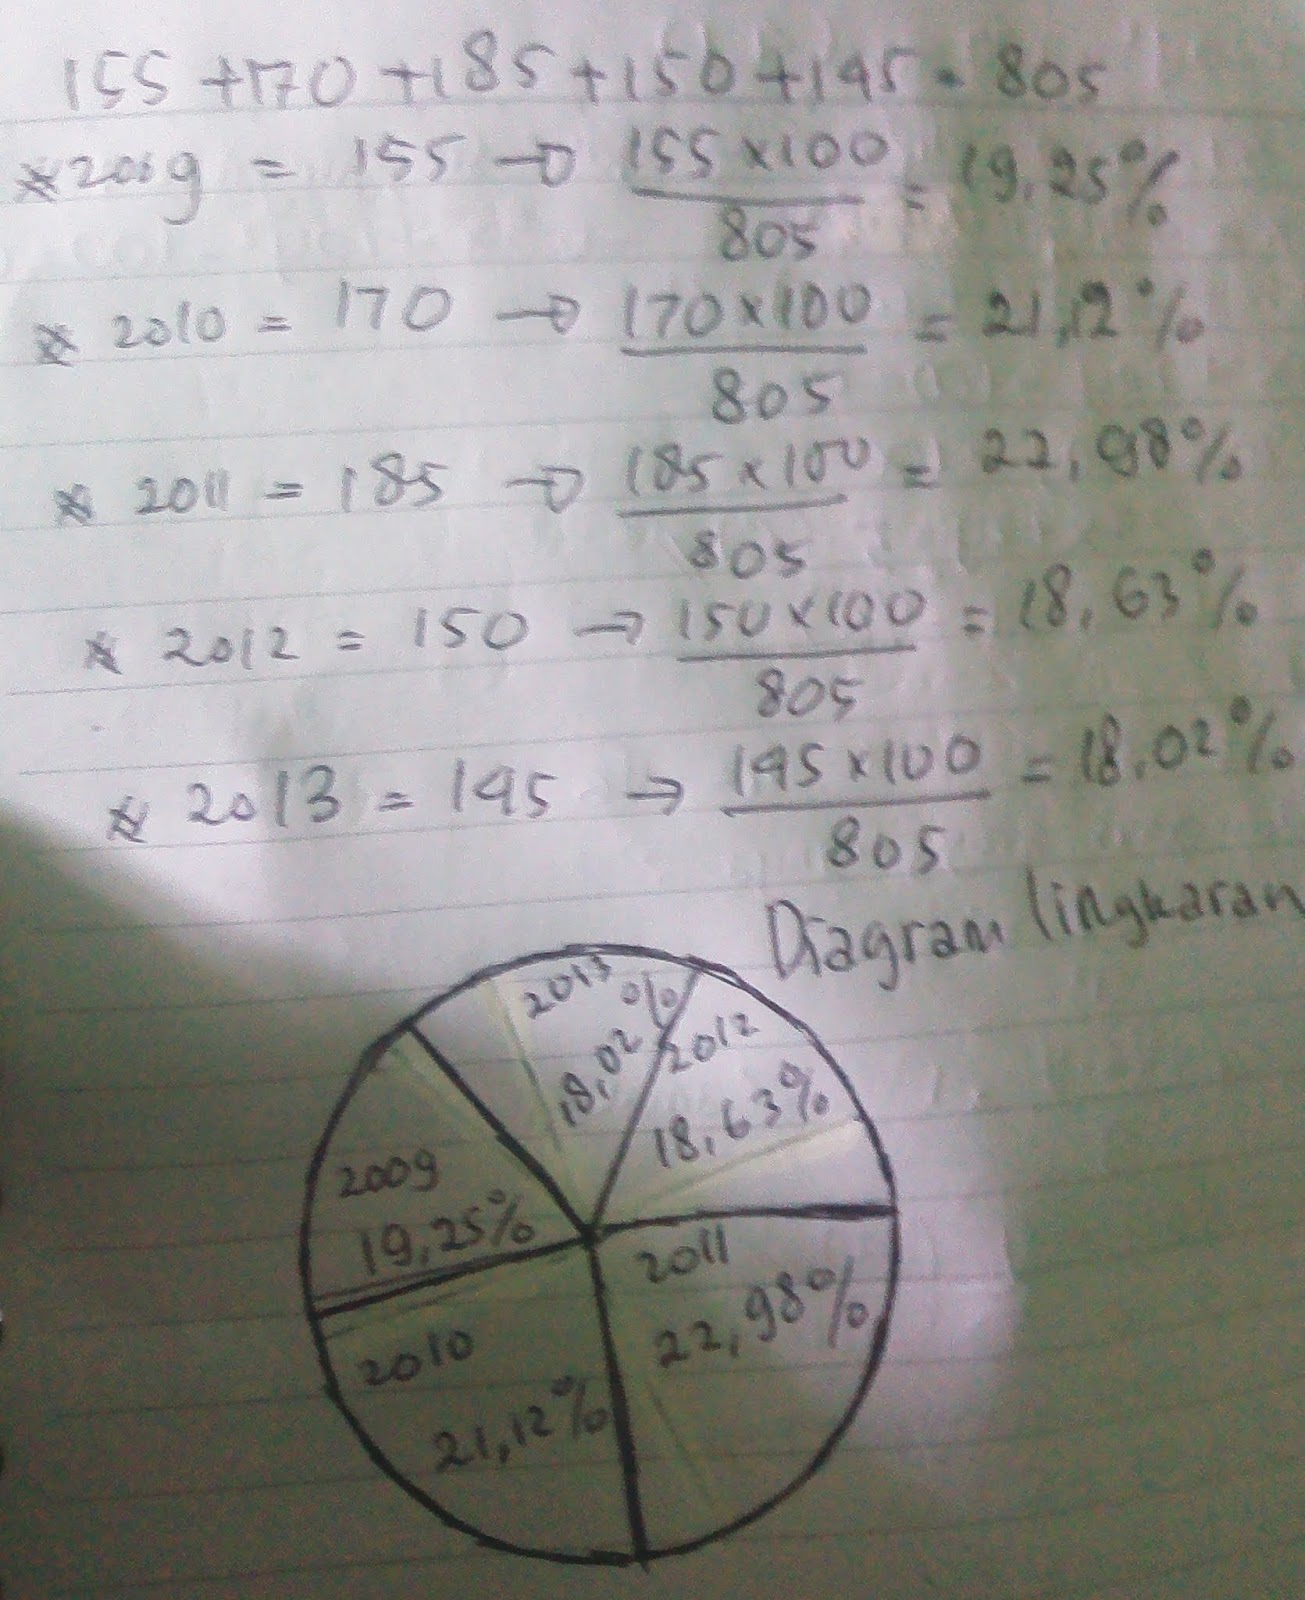 155 + 170 + 185 + 150 + 145 = 805
* 2009 = 155 → 155 x 100 = 19,25%
805
* 2010 = 170 → 170 x 100 = 21,12%
805
* 2011 = 185 → 185 x 100 = 22,98%
805
* 2012 = 150 → 150 x 100 = 18,63%
805
* 2013 = 145 → 145 x 100 = 18,02%
805
Diagram lingkaran
2013
18,02%
2012
18,63%
2009
19,25%
2011
22,98%
2010
21,12%